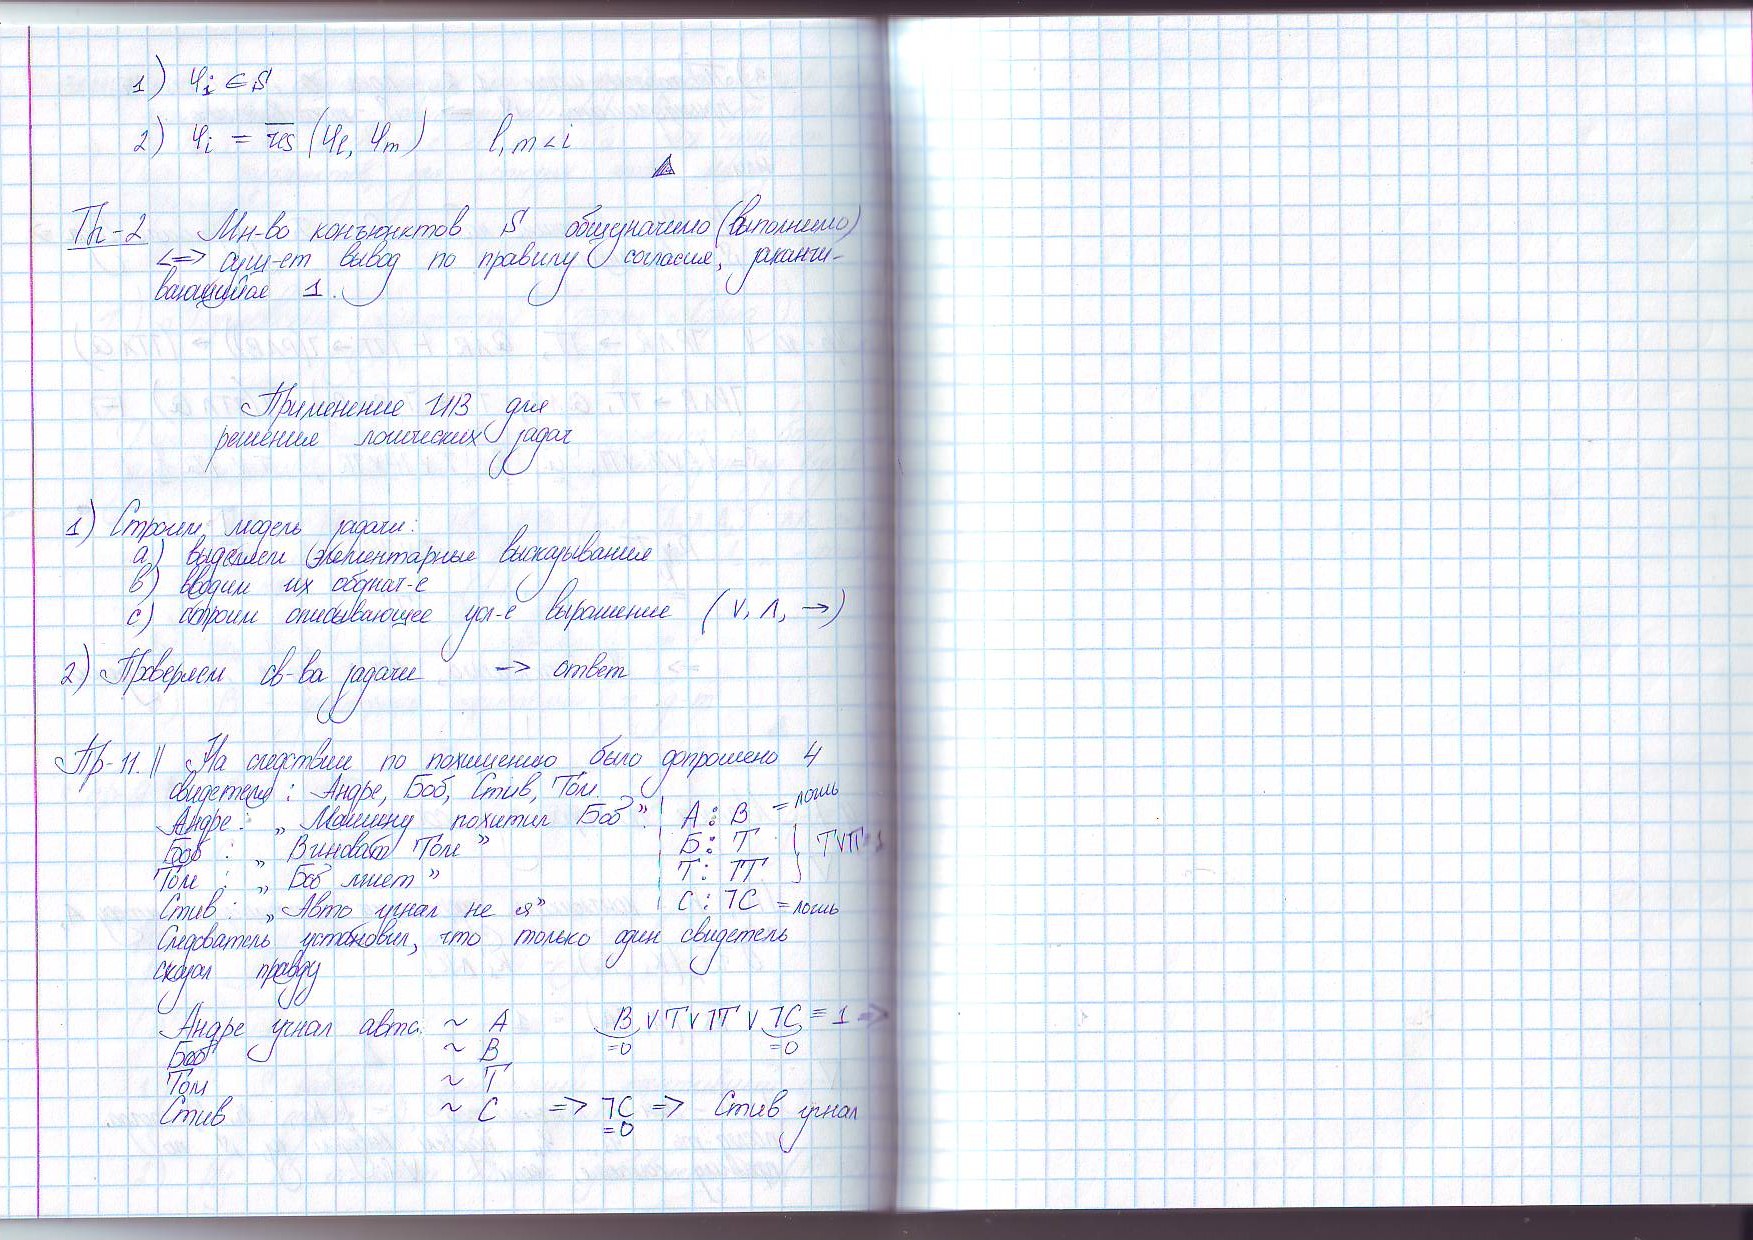 1) φi ∈ S
2) φi = r̅e̅s̅ (φl, φm)   l, m < i
Th-2 Мн-во конъюнктов S общезначимо (выполнимо)
<=> сущ-ет вывод по правилу согласия, заканчи-
вающийся 1.
Применение ИВ для
решения логических задач
1) Строим модель задачи:
a) выделяем элементарные высказывания
b) вводим их обознач-е
c) строим описывающее усл-е выражение (∨, ∧, →)
2) Проверяем св-ва задачи → ответ
Пр-11. || На следствии по похищению было допрошено 4
свидетеля: Андре, Боб, Стив, Том.
Андре: „Машину похитил Боб". А: B = ложь
Боб: „Виноват Том" Б: T } T∨¬T=1
Том: „Боб лжет" Т: ¬T
Стив: „Авто угнал не я" С: ¬C = ложь
Следователь установил, что только один свидетель
сказал правду
Андре угнал авто ~ A   B ∨ T ∨ ¬T ∨ ¬C ≡ 1 =>
Боб " ~ B   =0   =0
Том ~ T
Стив ~ C => ¬C => Стив угнал
=0